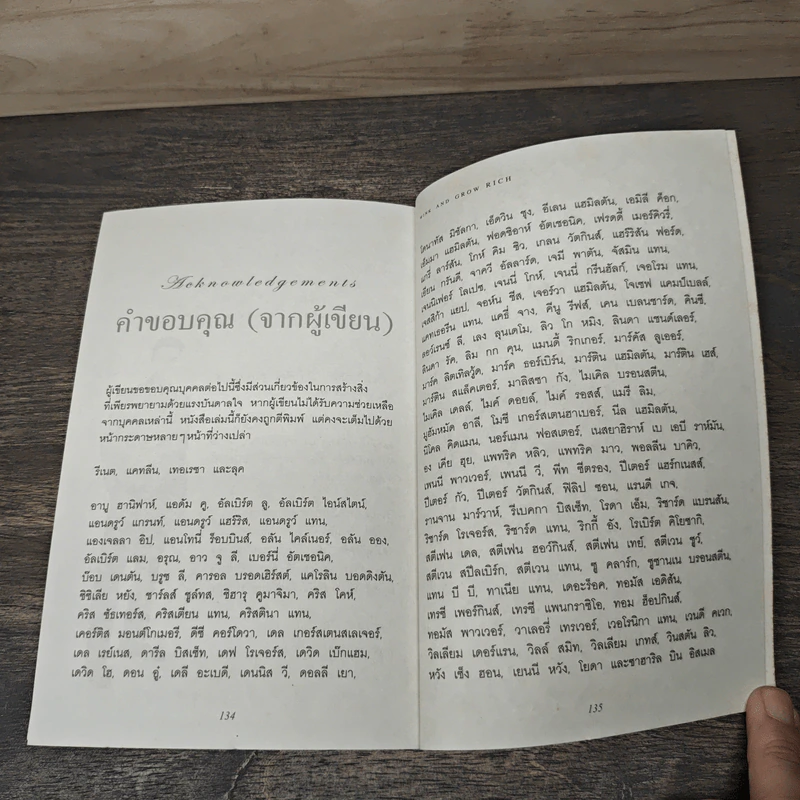 Acknowledgements
คำขอบคุณ (จากผู้เขียน)
ผู้เขียนขอขอบคุณบุคคลต่อไปนี้ซึ่งมีส่วนเกี่ยวข้องในการสร้างสิ่ง
ที่เพียรพยายามด้วยแรงบันดาลใจ หากผู้เขียนไม่ได้รับความช่วยเหลือ
จากบุคคลเหล่านี้ หนังสือเล่มนี้ก็ยังคงถูกตีพิมพ์ แต่คงจะเต็มไปด้วย
หน้ากระดาษหลายๆหน้าที่ว่างเปล่า
รีเนต, แคทลีน, เทอเรซา และลุค
อาบู ฮานิฟาห์, แอดัม คู, อัลเบิร์ต ลู, อัลเบิร์ต ไอน์สไตน์,
แอนดรูว์ แกรนท์, แอนดรูว์ แฮร์ริส, แอนดรูว์ แทน,
แองเจลลา อิป, แอนโทนี่ ร็อบบินส์, อลัน ไคล์เนอร์, อลัน ออง,
อัลเบิร์ต แลม, อรุณ, อาว จู ลี, เบอร์นี่ อัตเชอนิค,
บ๊อบ เดนตัน, บรูซ ลี, คารอล บรอดเฮิร์สต์, แคโรลิน บอดดิงตัน,
ซิซิเลีย หยัง, ชาร์ลส์ ชูล์ทส, ชิฮารุ คูมาจิมา, คริส โคห์,
คริส ซัธเทอร์ส, คริสเตียน แทน, คริสตินา แทน,
เคอร์ติส มอนต์โกเมอรี่, ดีซี คอร์โดวา, เดล เกอร์สเตนสเลเจอร์,
เดล เรย์เนส, ดารีล บิสเซ็ท, เดฟ โรเจอร์ส, เดวิด เบ็กแฮม,
เดวิด โฮ, ดอน อู๋, เดลี อะเบดี, เดนนิส วี, ดอลลี่ เยา,
134
AND GROW RICH
โดนาทัส มิซัลกา, เอ็ดวิน ชุง, อีเลน แฮมิลตัน, เอมิลี ค็อก,
เอ็มมา แฮมิลตัน, ฟอคซิอาห์ อัตเชอนิค, เฟรดดี้ เมอร์คิวรี่,
แกรี่ ลาร์สัน, โกห์ คิม ซิว, เกลน วัตกินส์, แฮร์ริสัน ฟอร์ด,
เฮียน กรันดี, จาควี อัลลาร์ด, เจมี พาตัน, จัสมิน แทน,
เจนนิเฟอร์ โลเปซ, เจนนี่ โกห์, เจนนี่ กรีนฮัลก์, เจอโรม แทน,
เจสสิก้า แยป, จอห์น ซีส, เจอร์วา แฮมิลตัน, โจเซฟ แคมป์เบลล์,
แคทเธอรีน แทน, แคธี่ จาง, คีนู รีฟส์, เคน เบลนชาร์ด, คินซี,
ลอว์เรนซ์ ลี, เลง ลุนเดโม, ลิว โก หมิง, ลินดา แซนด์เลอร์,
ลินดา รัค, ลิม กก คุน, แมนดี้ ริกเกอร์, มาร์คัส ลูเออร์,
มาร์ค ลิตเทิลวู้ด, มาร์ค ธอร์เบิร์น, มาร์ติน แฮมิลตัน, มาร์ติน เฮส์,
มาร์ติน สแล็คเตอร์, มาลิสซา กัง, ไมเคิล บรอนสตีน,
ไมเคิล เดลล์, ไมค์ ดอยล์, ไมค์ รอสส์, แมรี่ ลิม,
มูฮัมหมัด อาลี, โมซี เกอร์สเตนฮาเบอร์, นีล แฮมิลตัน,
นิโคล คิดแมน, นอร์แมน ฟอสเตอร์, เนสยาฮิราห์ เบ เอบี ราห์มัน,
อง เคีย ฮุย, แพทริค หลิว, แพทริค มาว, พอลลีน บาคิว,
เพนนี พาวเวอร์, เพนนี วี, พีท ซีตรอง, ปีเตอร์ แฮร์กเนสส์,
ปีเตอร์ กัว, ปีเตอร์ วัตกินส์, ฟิลิป ซอน, แรนดี เกจ,
รานจาน มาร์วาห์, รีเบคกา บิสเซ็ท, โรดา เอ็ม, ริชาร์ด แบรนสัน,
ริชาร์ด โรเจอร์ส, ริชาร์ด แทน, ริกกี้ อัง, โรเบิร์ต คิโยซากิ,
สตีเฟน เดล, สตีเฟน ฮอว์กินส์, สตีเฟน เทย์, สตีเวน ชูว์,
สตีเวน สปีลเบิร์ก, สตีเวน แทน, ซู คลาร์ก, ซูซานเน บรอนสตีน,
แทน บี บี, ทาเนีย แทน, เดอะร็อค, ทอมัส เอดิสัน,
เทรซี่ เพอร์กินส์, เทรซี่ แพนกราซิโอ, ทอม ฮ็อปกินส์,
ทอมัส พาวเวอร์, วาเลอรี่ เทรเวอร์, เวอโรนิกา แทน, เวนดี คเวก,
วิลเลียม เดอร์แรน, วิลล์ สมิท, วิลเลียม เกทส์, วินสตัน ลิว,
หวัง เซ็ง ฮอน, เยนนี หวัง, โยดา และซาฮาริล บิน อิสเมล
135